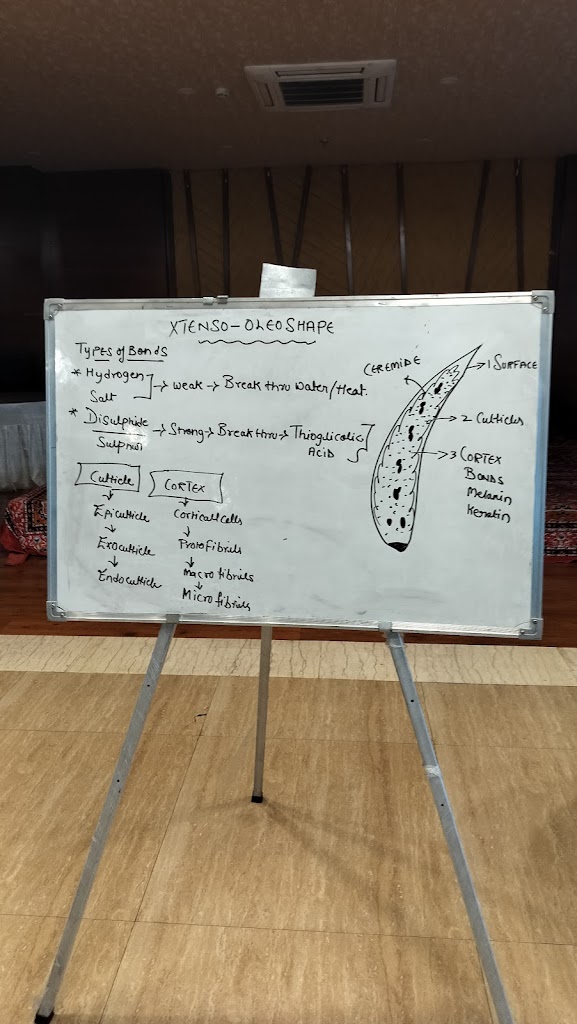 XTENSO-OLEOSHAPE
Types of Bonds
* Hydrogen
Salt
→ weak → Break thru Water/Heat.
* Disulphide
Sulphur
→ Strong → Break thru → Thioglicolic
Acid
Cutticle
↓
Epicutticle
↓
Exocutticle
↓
Endocutticle
CORTEX
↓
Cortical cells
↓
Protofibrils
↓
Macrofibrils
↓
Microfibrils
CEREMIDE
→ 1 SURFACE
→ 2 Cutticles
→ 3 CORTEX
Bonds
Melanin
Keratin